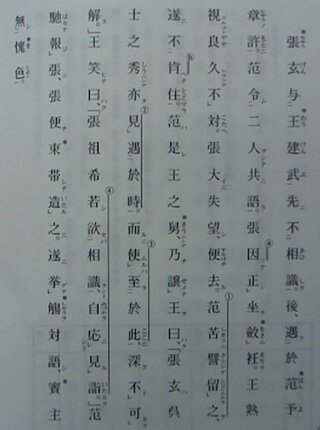 張玄与王建武先不相識後、遇於范予
章許。范令二人共語。張因正坐斂衽王熟
視良久不対。張大失望、便去。范苦譬留之、
遂不肯住。范是王之舅、乃譲王曰、張玄呉
士之秀亦見遇於時。而使至於此深不可
解。王笑曰、「張祖希若欲相識、自応見詣。」范
馳報張。張便束帯造之。遂挙觴対語、賓主
無愧色。